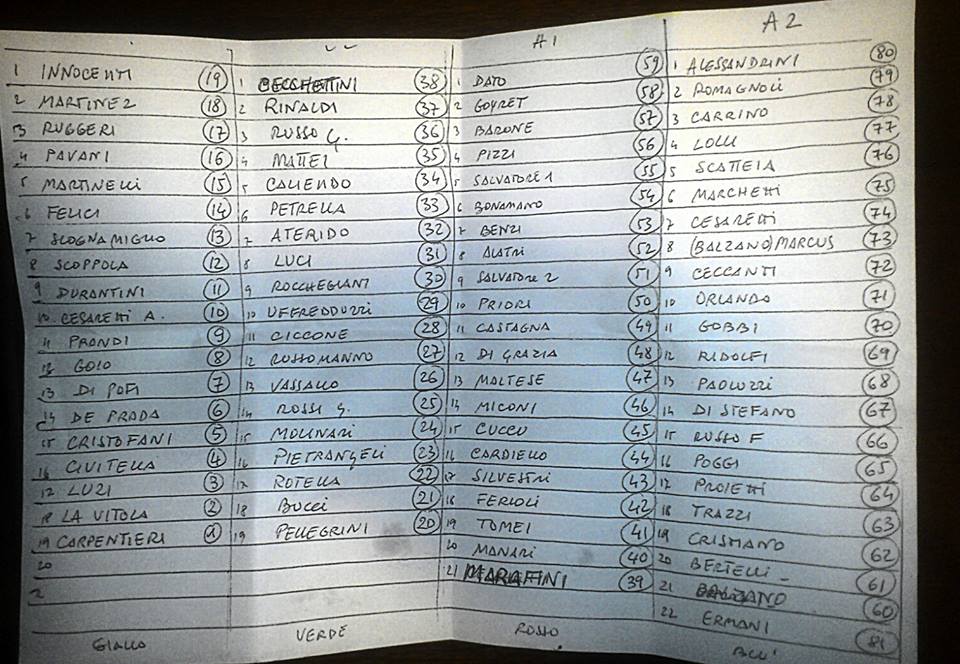 1 INNOCENTI 19
2 MARTINEZ 18
3 RUGGERI 17
4 PAVANI 16
5 MARTINELLI 15
6 FELICI 14
7 SCOGNAMIGLIO 13
8 SCOPPOLA 12
9 DURANTINI 11
10 CESARETTI A. 10
11 PRANDI 9
12 GOIO 8
13 DI POFI 7
14 DE PRADA 6
15 CRISTOFANI 5
16 CIVITELLA 4
17 LUZI 3
18 LA VITOLA 2
19 CARPENTIERI 1
20
GIALLO
1 CECCHETTINI 38
2 RINALDI 37
3 RUSSO G. 36
4 MATTEI 35
5 CALIENDO 34
6 PETRELLA 33
7 ATERIDO 32
8 LUCI 31
9 ROCCHEGIANI 30
10 UFFREDDUZZI 29
11 CICCONE 28
12 RUSSOMANNO 27
13 VASSALLO 26
14 ROSSI G. 25
15 MOLINARI 24
16 PIETRANGELI 23
17 ROTELLA 22
18 BUCCI 21
19 PELLEGRINI 20
VERDE
A1
1 DATO 59
2 GOYRET 58
3 BARONE 57
4 PIZZI 56
5 SALVATORE 1 55
6 BONAMANO 54
7 BENZI 53
8 ALATRI 52
9 SALVATORE 2 51
10 PRIORI 50
11 CASTAGNA 49
12 DI GRAZIA 48
13 MALTESE 47
14 MICONI 46
15 CUCCU 45
16 CARDIELLO 44
17 SILVESTRI 43
18 FERIOLI 42
19 TOMEI 41
20 MANARI 40
21 MARAFINI 39
ROSSO
A2
1 ALESSANDRINI 80
2 ROMAGNOLI 79
3 CARRINO 78
4 LOLLI 77
5 SCATTEIA 76
6 MARCHETTI 75
7 CESARETTI 74
8 (BALZANO) MARCUS 73
9 CECCANTI 72
10 ORLANDO 71
11 GOBBI 70
12 RIDOLFI 69
13 PAOLUZZI 68
14 DI STEFANO 67
15 RUSSO F 66
16 POGGI 65
17 PROIETTI 64
18 TRAZZI 63
19 CRISMANO 62
20 BERTELLI 61
21 BALZANO 60
22 ERMANI 81
BLU'